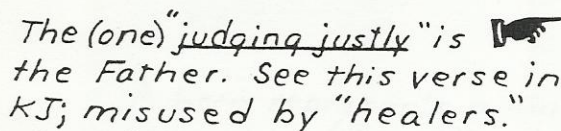 The (one) "judging justly" is
the Father. See this verse in
KJ; misused by "healers."